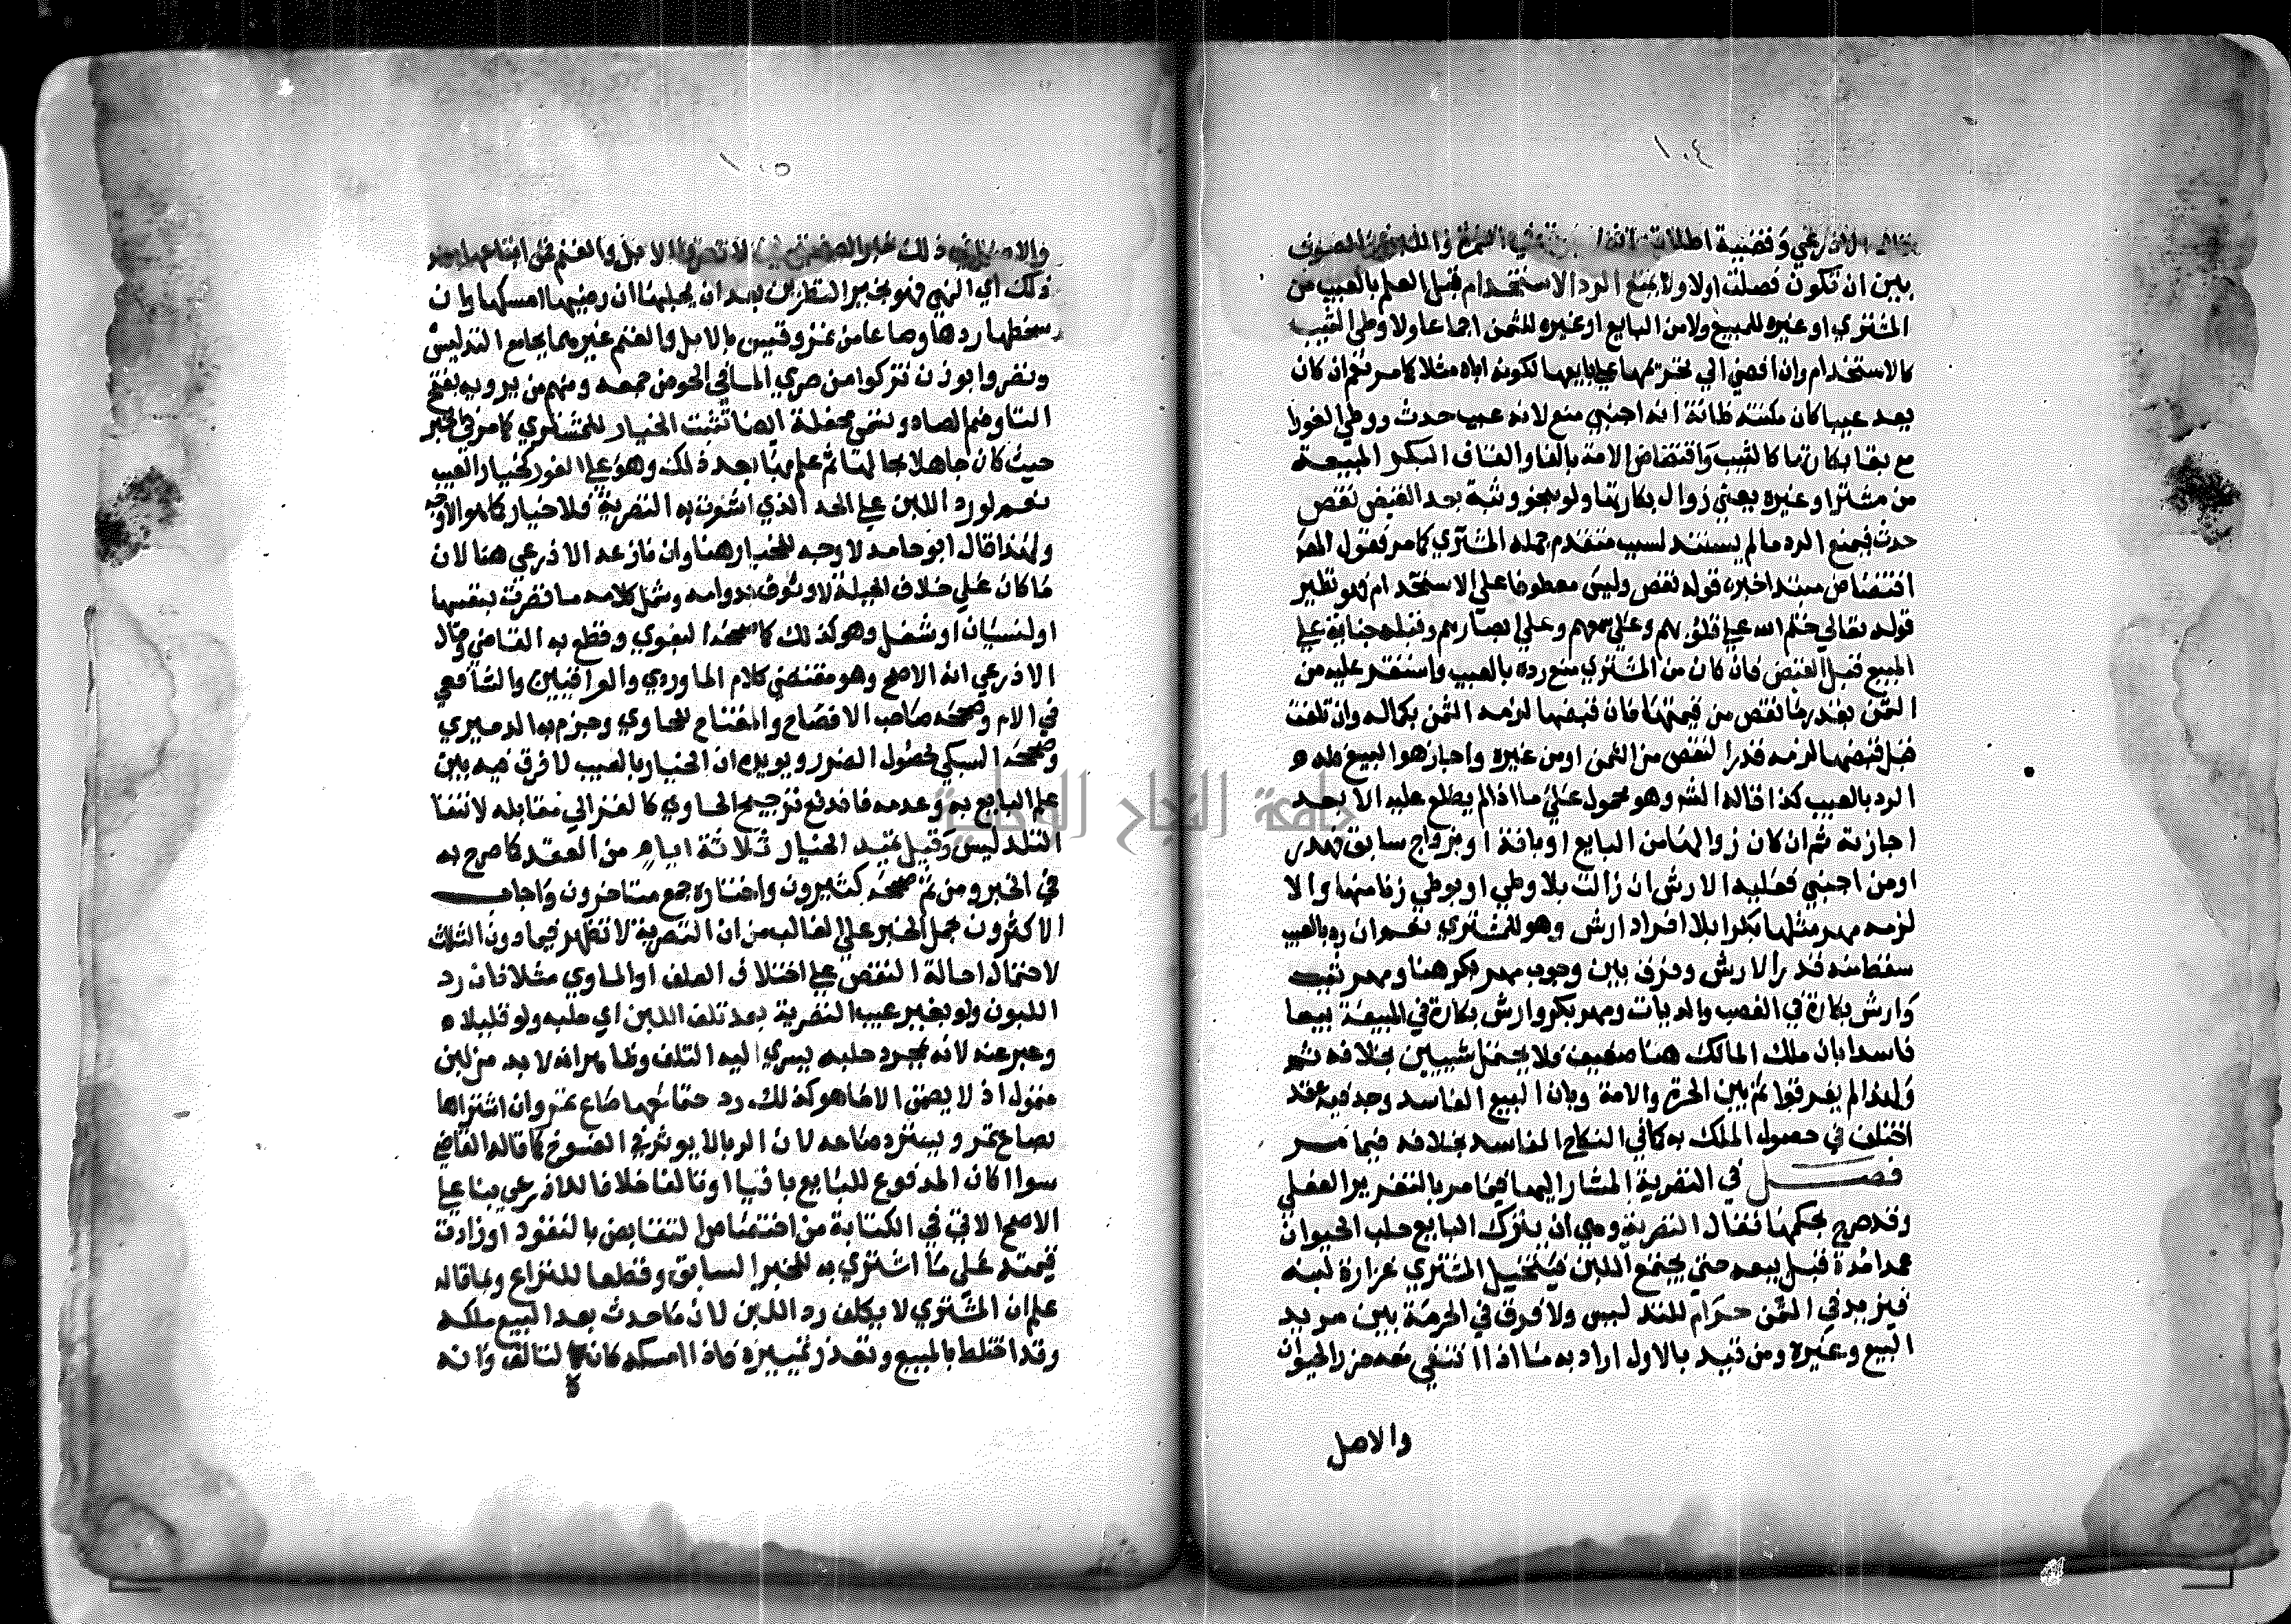 ١٠٤
الاذرعي وقضية اطلاق
بين ان تكون فصلت اولا ولا يمنع الرد الاستخدام قبل العلم بالعيب من
المشتري او غيره للمبيع ولا من البايع او غيره للثمن اجماعا ولا وطي الثيب
كالاستخدام وان افضي الي تحريمها علي بايعها لكونه اباه مثلا كما مر نعم ان كان
يعد عيبا كان مكنته ظانة انه اجنبي منع لانه عيب حدث ووطي الغورا
مع بقا بكارتها كالثيب واقتضاض الامة بالفا والقاف البكر المبيعة
من مشتر او غيره يعني زوال بكارتها ولو بنحو وثبة بعد القبض نقص
حدث فيمنع الرد ما لم يستند لسبب متقدم جهله المشتري كما مر فقول المص
اقتضاض مبتدا خبره قوله نقص وليس معطوفا علي الاستخدام فهو نظير
قوله تعالي ختم الله علي قلوبهم وعلي سمعهم وعلي ابصارهم وقبله جناية علي
المبيع قبل القبض فان كان من المشتري منع رده بالعيب واستقر عليه من
الثمن بقدر ما نقص من قيمتها فان قبضها لزمه الثمن بكماله وان تلفت
قبل قبضها لزمه قدر النقص من الثمن او من غيره واجاز هو البيع فله
الرد بالعيب كذا قاله الشر وهو محمول علي ما اذا لم يطلع عليه الا بعد
اجازته ثم ان كان زوالها من البايع او بافة او بزواج سابق فهدر
او من اجنبي فعليه الارش ان زالت بلا وطي او بوطي زنا منها والا
لزمه مهر مثلها بكرا بلا افراد ارش وهو للمشتري نعم ان رد بالعيب
سقط منه قدر الارش وفرق بين وجوب مهر بكر هنا ومهر ثيب
وارش بكارة في الغصب والديات ومهر بكر وارش بكارة في المبيعة بيعا
فاسدا بان ملك المالك هنا ضعيف فلا يحتمل شيين بخلافه ثم
ولهذا لم يفرقوا ثم بين الحرة والامة وبان البيع الفاسد وجد فيه عقد
اختلف في حصول الملك به كما في النكاح الفاسد بخلافه فيما مر
فصل في التصرية المشار اليها فيما مر بالتغرير الفعلي
وقد صرح بحكمها فقال التصرية وهي ان يترك البايع حلب الحيوان
عمدا مدة قبل بيعه حتي يجتمع اللبن فيتخيل المشتري غزارة لبنه
فيزيد في الثمن حرام للتدليس ولا فرق في الحرمة بين مريد
البيع وغيره ومن قيد بالاول اراد به ما اذا انتفي معه ضرر الحيوان
والاصل
١٠٥
والاصل في ذلك خبر الصحيحين لا تصروا الابل والغنم فمن ابتاعها بعد
ذلك اي النهي فهو بخير النظرين بعد ان يحلبها ان رضيها امسكها وان
سخطها ردها وصاعا من تمر وقيس بالابل والغنم غيرهما بجامع التدليس
وتصروا بوزن تزكوا من صري الما في الحوض جمعه ومنهم من يرويه بفتح
التا وضم الصاد وتسمي محفلة ايضا تثبت الخيار للمشتري كما مر في الخبر
حيث كان جاهلا بحالها ثم علم بها بعد ذلك وهو علي الفور كخيار العيب
نعم لو رد اللبن علي الحد الذي اشعرت به التصرية فلا خيار كما هو الاوجه
ولهذا قال ابو حامد لا وجه للخيار هنا وان نازعه الاذرعي هنا لان
ما كان علي خلاف الجبلة لا وثوق بدوامه وشمل كلامه ما تصرت بنفسها
او لنسيان او شغل وهو كذلك كما صححه البغوي وقطع به القاضي وقال
الاذرعي انه الاصح وهو مقتضي كلام الماوردي والعراقيين والشافعي
في الام وصححه صاحب الافصاح والمفتاح للحاوي وجزم به الدميري
وصححه السبكي لحصول الضرر ويويده ان الخيار بالعيب لا فرق فيه بين
علم البايع به وعدمه فاندفع ترجيح الحاوي كالغزالي مقابله لانتفا
التدليس وقيل يمتد الخيار ثلاثة ايام من العقد كما صرح به
في الخبر ومن ثم صححه كثيرون واختاره جمع متاخرون واجاب
الاكثرون بحمل الخبر علي الغالب من ان التصرية لا تظهر فيما دون الثلاث
لاحتمال احالة النقص علي اختلاف العلف او الماوي مثلا فان رد
اللبون ولو بغير عيب التصرية بعد تلف اللبن اي حلبه ولو قليلا
وعبر عنه لانه بمجرد حلبه يسري اليه التلف وظاهر انه لا بد من لبن
متمول اذ لا يضمن الا ما هو كذلك رد حتما معها صاع تمر وان اشتراها
بصاع تمر ويسترد صاعه لان الربا لا يوثر في الفسوخ كما قاله القاضي
سوا اكان المدفوع للبايع باقيا او تالفا خلافا للاذرعي بنا علي
الاصح الاتي في الكتابة من اختصاص التقابض بالنقود او زادت
قيمته علي ما اشتري به للخبر السابق وقطعا للنزاع وبما قاله
علم ان المشتري لا يكلف رد اللبن لان ما حدث بعد البيع ملكه
وقد اختلط بالمبيع وتعذر تمييزه فاذا امسكه كان كالتالف وانه